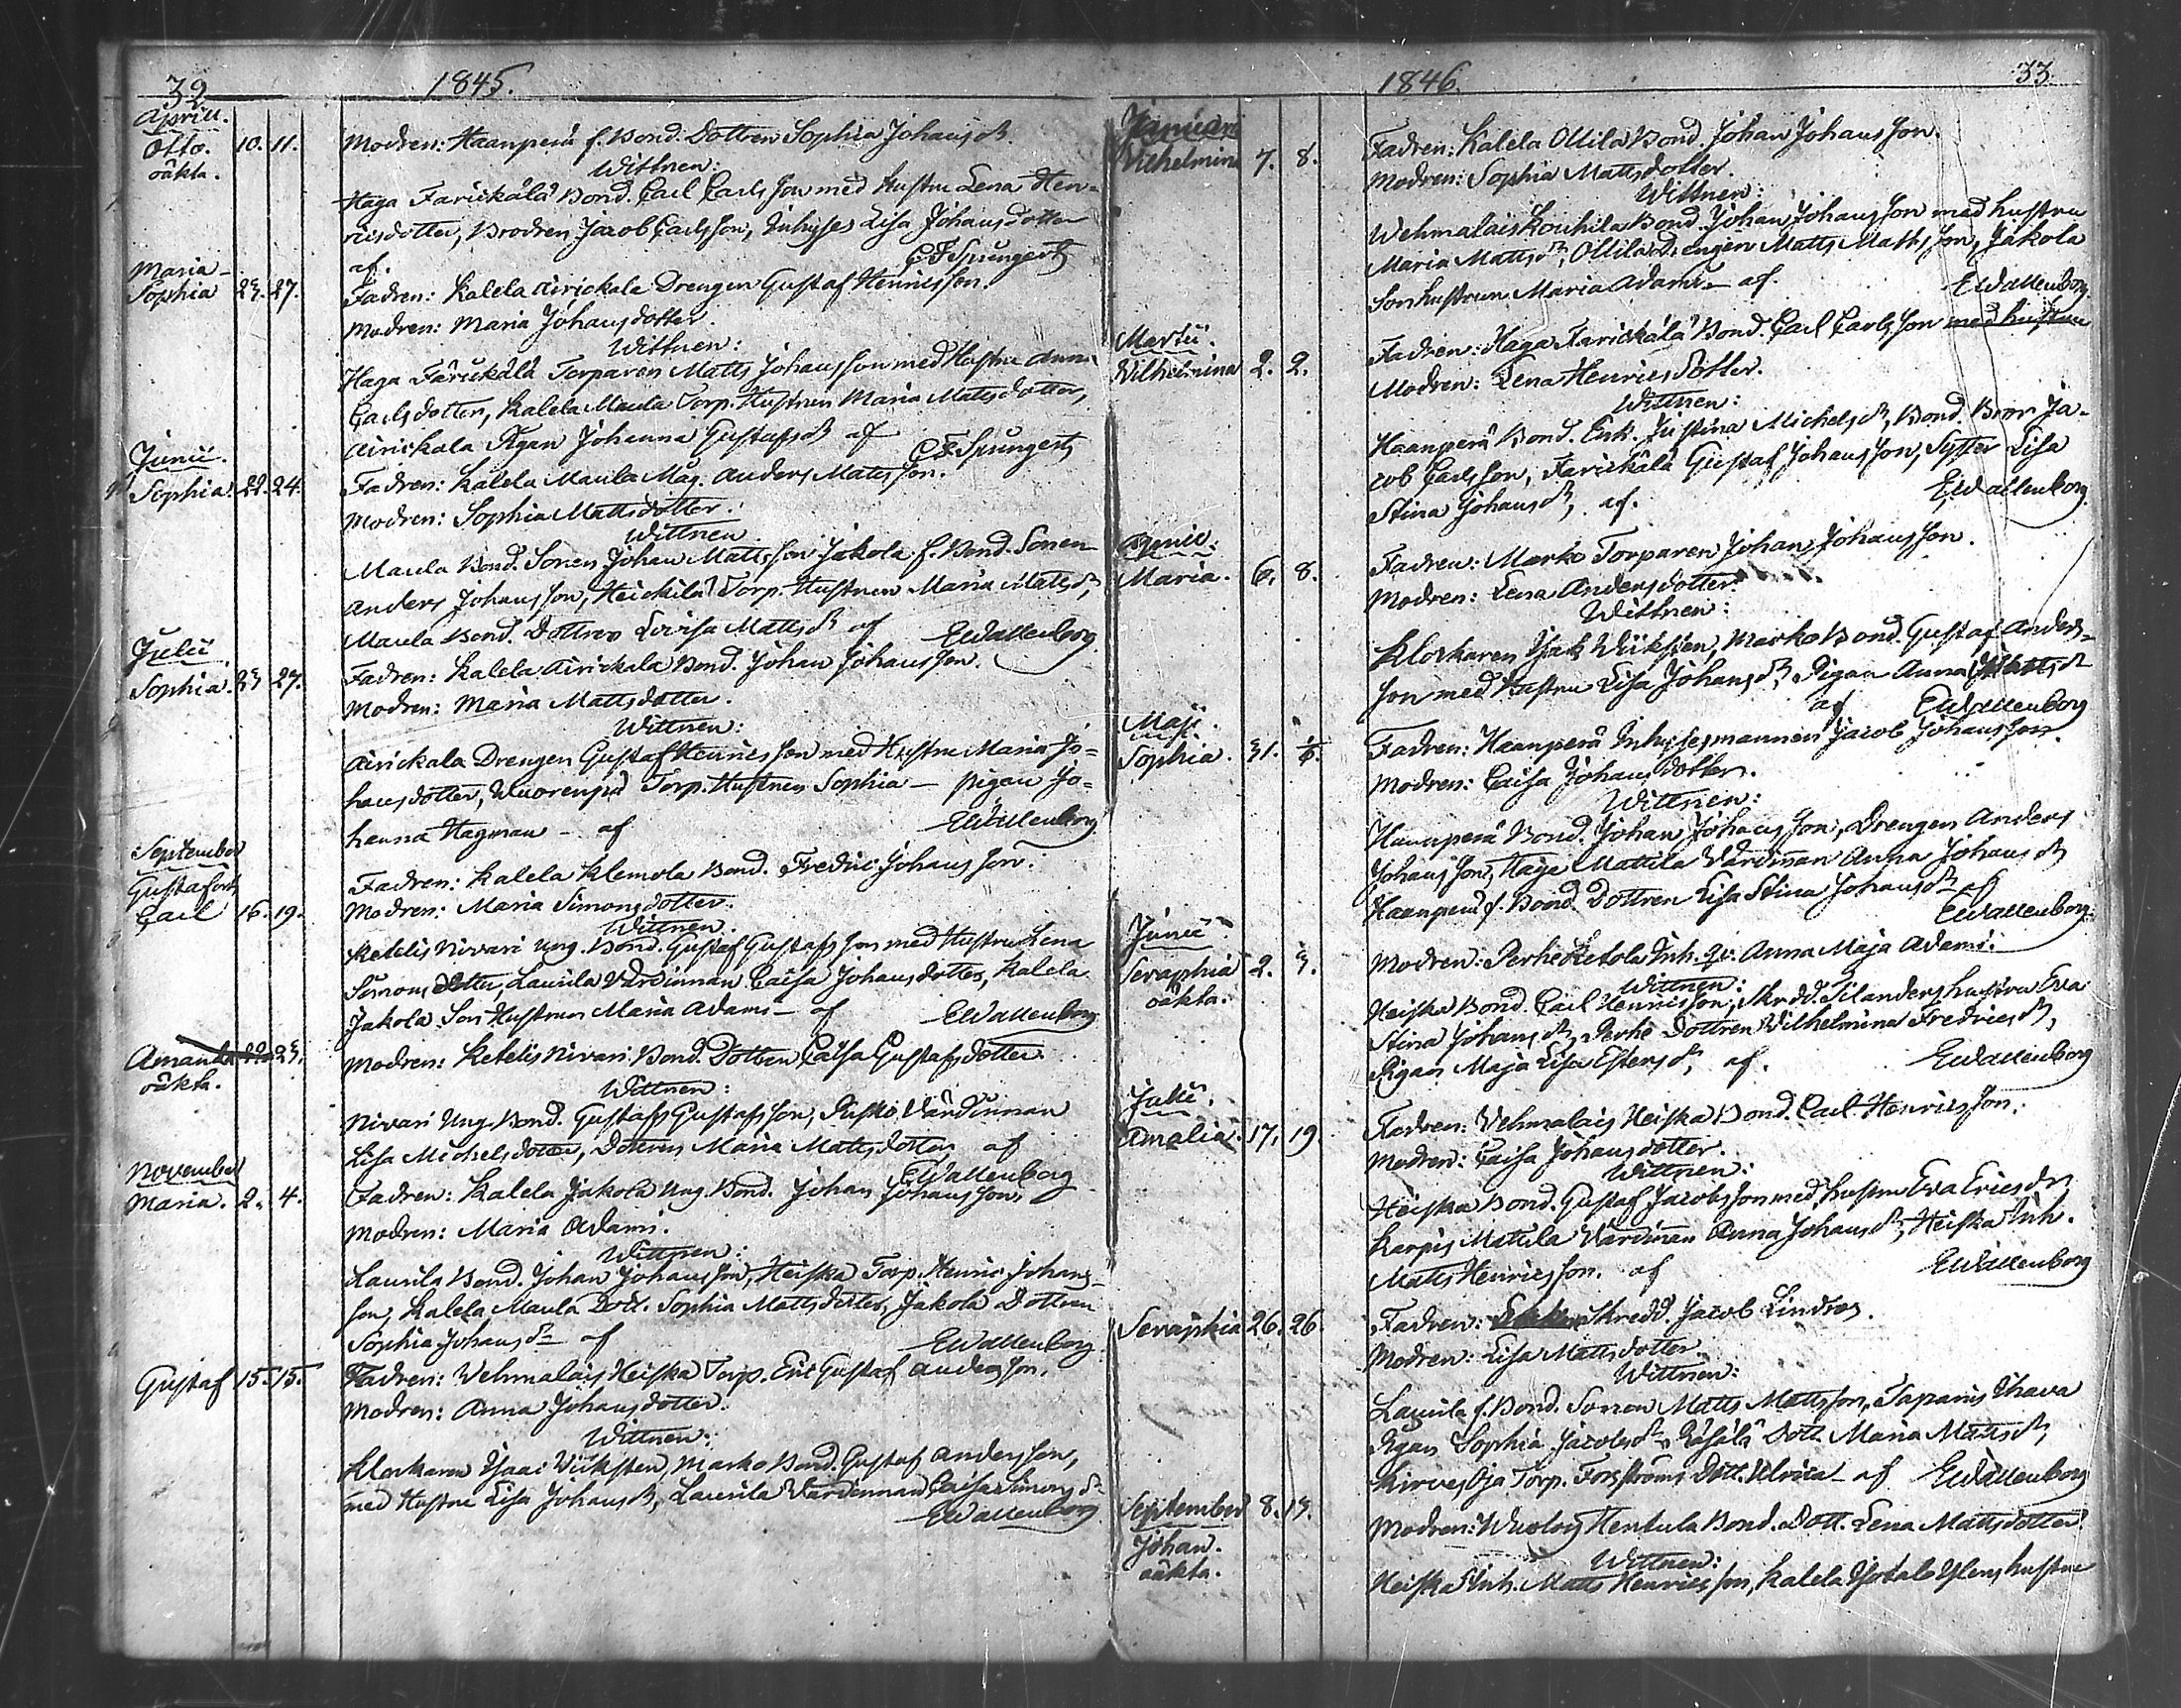 32
1845.
Aprill.
Otto. 10. 11. Modren: Haanperä f. Bond. Dottren Sophia Johansdr
oäkta.
Wittnen:
Haga Farickälä Bond. Carl Carlsson med hustru Lena Hen-
ricsdotter, Brodren Jacob Carlsson, Inhyses Lisa Johansdotter
af. CFSpungert
Maria
Sophia 23. 27. Fadren: Kalela Airickala Drengen Gustaf Henricsson.
Modren: Maria Johansdotter.
Wittnen:
Haga Färickälä Torparen Matts Johansson med Hustru Anna
Carlsdotter, Kalela Maula Torp. Hustrun Maria Mattsdotter,
Airickala Pigan Johanna Gustafsdr af CFSpungert
Junii.
Sophia. 22. 24. Fadren: Kalela Maula Måg. Anders Matsson.
Modren: Sophia Mattsdotter.
Wittnen
Maula Bond. Sonen Johan Mattsson Jakola f. Bond. Sonen
Anders Johansson, Heickilä Torp. Hustrun Maria Matsdr,
Maula Bond. Dottren Lovisa Mattsdr af EWallenborg
Julii
Sophia. 23 27. Fadren: Kalela Airickala Bond. Johan Johansson.
Modren: Maria Mattsdotter.
Wittnen:
Airickala Drengen Gustaf Henricsson med Hustru Maria Jo=
hansdotter, Torp. Hustrun Sophia — pigan Jo=
hanna Hagman — af EWallenborg
September
Gustaf och
Carl 16. 19. Fadren: Kalela Klemola Bond. Fredric Johansson.
Modren: Maria Simonsdotter.
Wittnen.
Ketelis Nivari Ung. Bond. Gustaf Gustafsson med Hustru Lena
Simonsdotter, Laurila Värdinnan Caisa Johansdotter, Kalela
Jakola Son Hustrun Maria Adami — af EWallenborg
Amanda 22. 23. Modren: Ketelis Nivari Bond. Dottren Caisa Gustafsdotter
oäkta.
Wittnen:
Nivari Ung. Bond. Gustaf Gustafsson, Värdinnan
Lisa Michelsdotter, Dottren Maria Mattsdotter af
EWallenborg
November
Maria. 2. 4. Fadren: Kalela Jakola Ung. Bond. Johan Johansson,
Modren: Maria Adami.
Wittnen:
Laurila Bond. Johan Johansson, Heiska Torp. Henric Johans-
son, Kalela Maula Dott. Sophia Mattsdotter, Jakola Dottren
Sophia Johansdr af EWallenborg
Gustaf 15. 15. Fadren: Vehmalais Heiska Torp. Eric Gustaf Andersson.
Modren: Anna Johansdotter.
Wittnen:
Klockaren Isaac Wiiksten, Marko Bond. Gustaf Andersson,
med Hustru Lisa Johansdr, Laurila Värdinnan Caisa Simonsdr
EWallenborg
1846.
33
Januari
Wilhelmina 7. 8. Fadren: Kalela Ollila Bond. Johan Johansson.
Modren: Sophia Mattsdotter.
Wittnen:
Wehmalais Kouhila Bond. Johan Johansson med hustru
Maria Mattsdr, Ollila Drengen Matts Mattsson, Jakola
Sonhustrun Maria Adami — af. EWallenborg
Martii.
Wilhelmina 2. 2. Fadren: Haga Farickälä Bond. Carl Carlsson med hustru
Modren: Lena Henricsdotter.
Wittnen:
Haanperä Bond. Enk. Justina Michelsdr, Bond. Bror Ja-
cob Carlsson, Farickälä Gustaf Johansson, Syster Lisa
Stina Johansdr, af. EWallenborg
Aprill.
Maria. 6. 8. Fadren: Marko Torparen Johan Johansson.
Modren: Lena Andersdotter.
Wittnen:
Klockaren Isak Wiiksten, Marko Bond. Gustaf Anders-
son med Hustru Lisa Johansdr, Pigan Anna
af EWallenborg
Maji.
Sophia. 31. 1/6. Fadren: Haanperä Inhysesmannen Jacob Johansson.
Modren: Caisa Johansdotter.
Wittnen:
Haanperä Bond. Johan Johansson, Drengen Anders
Johansson, Haga Mattila Värdinnan Anna Johansdr
Haanperä f. Bond. Dottren Lisa Stina Johansdr af
EWallenborg.
Junii
Seraphia 2. 3. Modren: Perhe Ketola Inh. qv. Anna Maja Adami.
oäkta.
Wittnen:
Heiska Bond. Carl Henricsson, Skrdd. Silanders hustru Eva
Stina Johansdr, Perhe Dottren Wilhelmina Fredricsdr,
Pigan Maja Lisa Estersdr, af. EWallenborg
Julii.
Amalia. 17. 19. Fadren: Vehmalais Heiska Bond. Carl Henricsson.
Modren: Caisa Johansdotter.
Wittnen:
Heiska Bond. Gustaf Jacobsson med hustru Eva Ericsdr
Karpis Mattila Värdinnan Anna Johansdr, Heiska Inh.
Matts Henricsson. af EWallenborg
Seraphia 26. 26. Fadren: Skredd. Jacob Lindros.
Modren: Lisa Mattsdotter.
Wittnen:
Laurila f. Bond. Sonen Matts Mattsson, Ihava
Pigan Sophia Jacobsdr, Dott. Maria Mattsdr,
Kirves Oja Torp. Forsströms Dott. Ulrica — af EWallenborg
September 8. 13. Modren: Hentula Bond. Dott. Lena Mattsdotter
Johan.
oäkta.
Wittnen:
Heiska Inh. Matts Henricsson, Kalela hustru